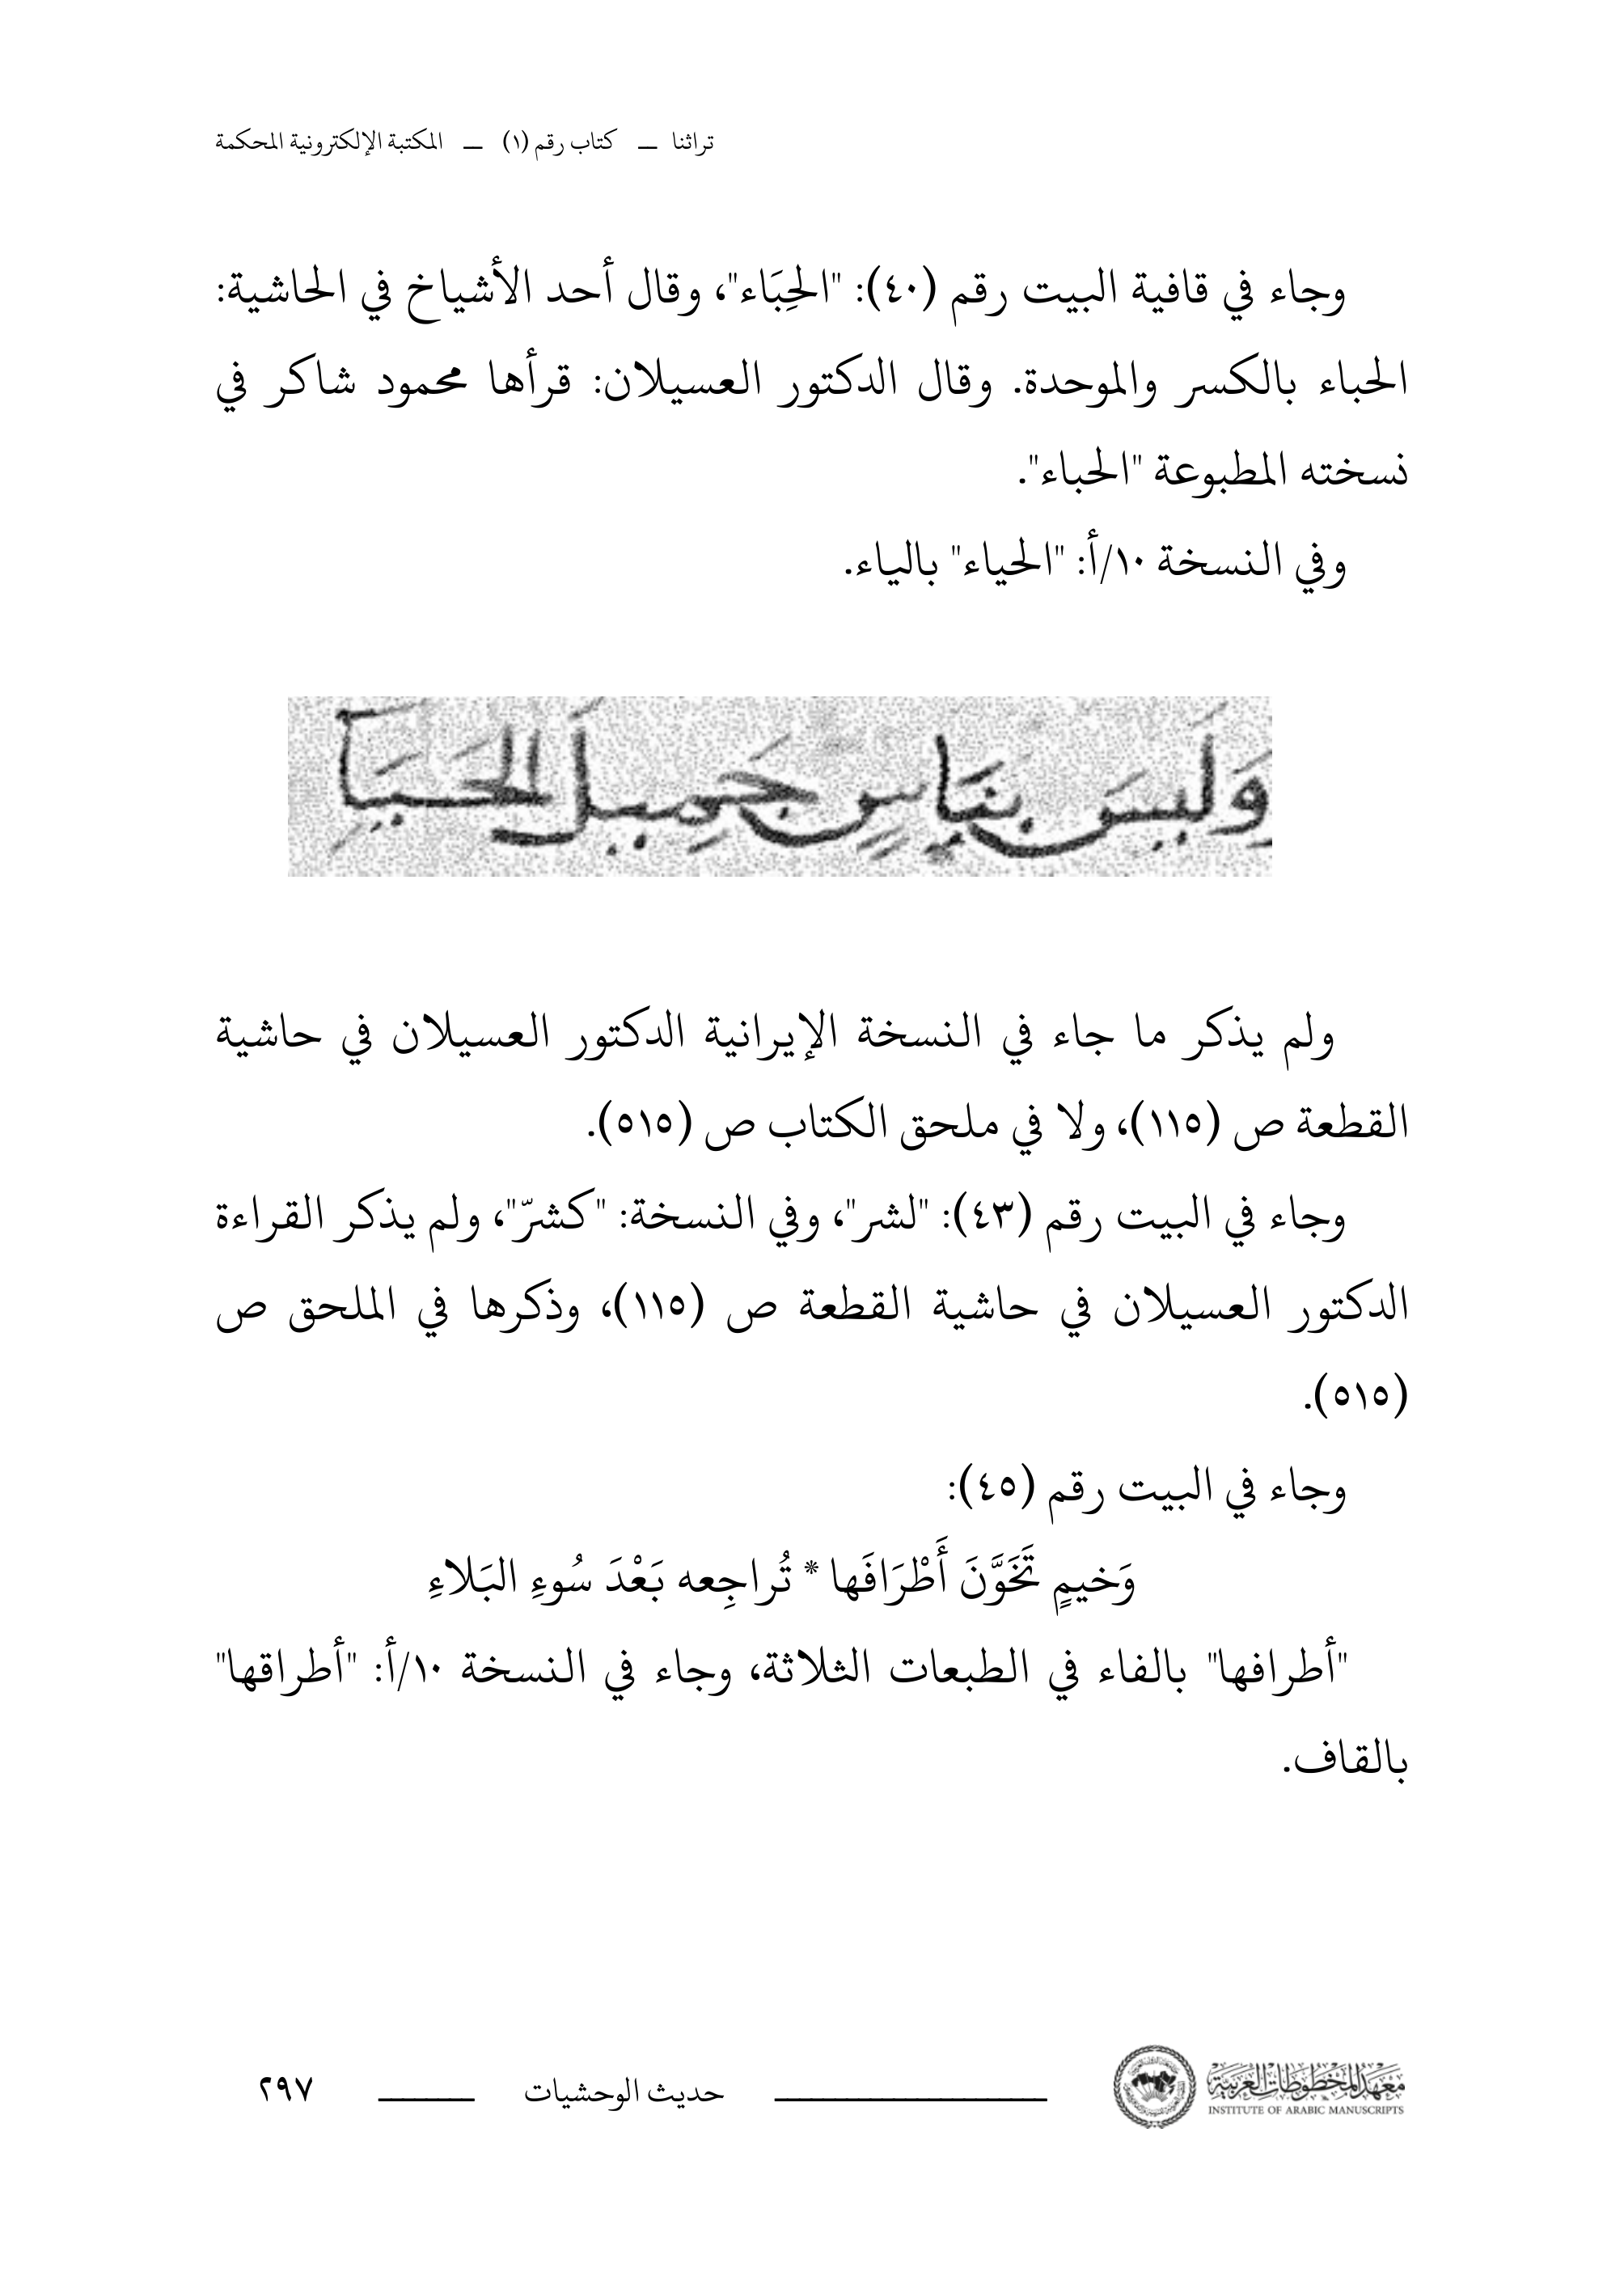 تراثنا — كتاب رقم (١) — المكتبة الإلكترونية المحكمة
وجاء في قافية البيت رقم (٤٠): "الحِبَاء"، وقال أحد الأشياخ في الحاشية:
الحباء بالكسر والموحدة. وقال الدكتور العسيلان: قرأها محمود شاكر في
نسخته المطبوعة "الحباء".
وفي النسخة ١٠/أ: "الحياء" بالياء.
وَلَيسَ بنَاسٍ جَمِيلَ الحَيَا
ولم يذكر ما جاء في النسخة الإيرانية الدكتور العسيلان في حاشية
القطعة ص (١١٥)، ولا في ملحق الكتاب ص (٥١٥).
وجاء في البيت رقم (٤٣): "لشر"، وفي النسخة: "كشرّ"، ولم يذكر القراءة
الدكتور العسيلان في حاشية القطعة ص (١١٥)، وذكرها في الملحق ص
(٥١٥).
وجاء في البيت رقم (٤٥):
وَخيمٍ تَخَوَّنَ أَطْرَافَها * تُراجِعه بَعْدَ سُوءِ البَلاءِ
"أطرافها" بالفاء في الطبعات الثلاثة، وجاء في النسخة ١٠/أ: "أطراقها"
بالقاف.
معهد المخطوطات العربية
INSTITUTE OF ARABIC MANUSCRIPTS
حديث الوحشيات
٢٩٧